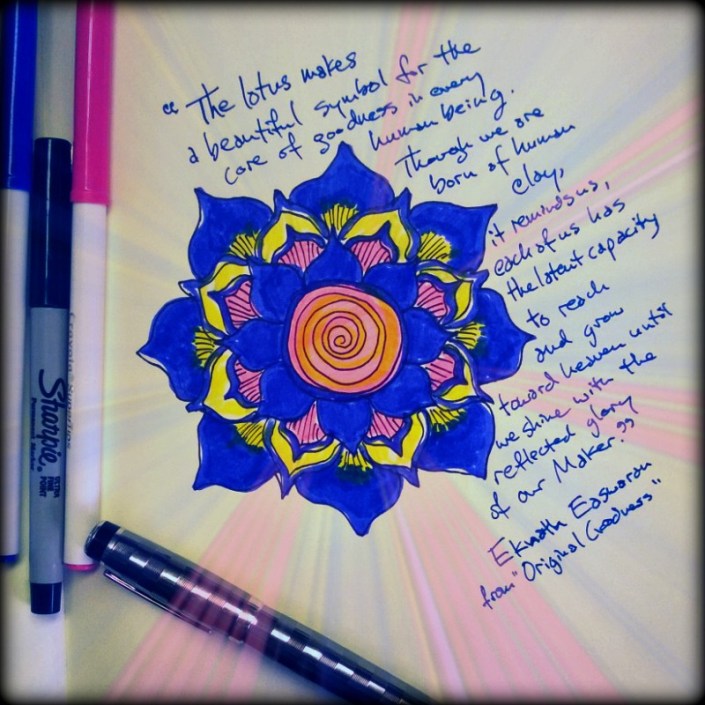 "The lotus makes
a beautiful symbol for the
core of goodness in every
human being.
Though we are
born of human
clay,
it reminds us,
each of us has
the latent capacity
to reach
and grow
toward heaven until
we shine with the
reflected glory
of our Maker."
Eknath Easwaran
from "Original Goodness"
Sharpie